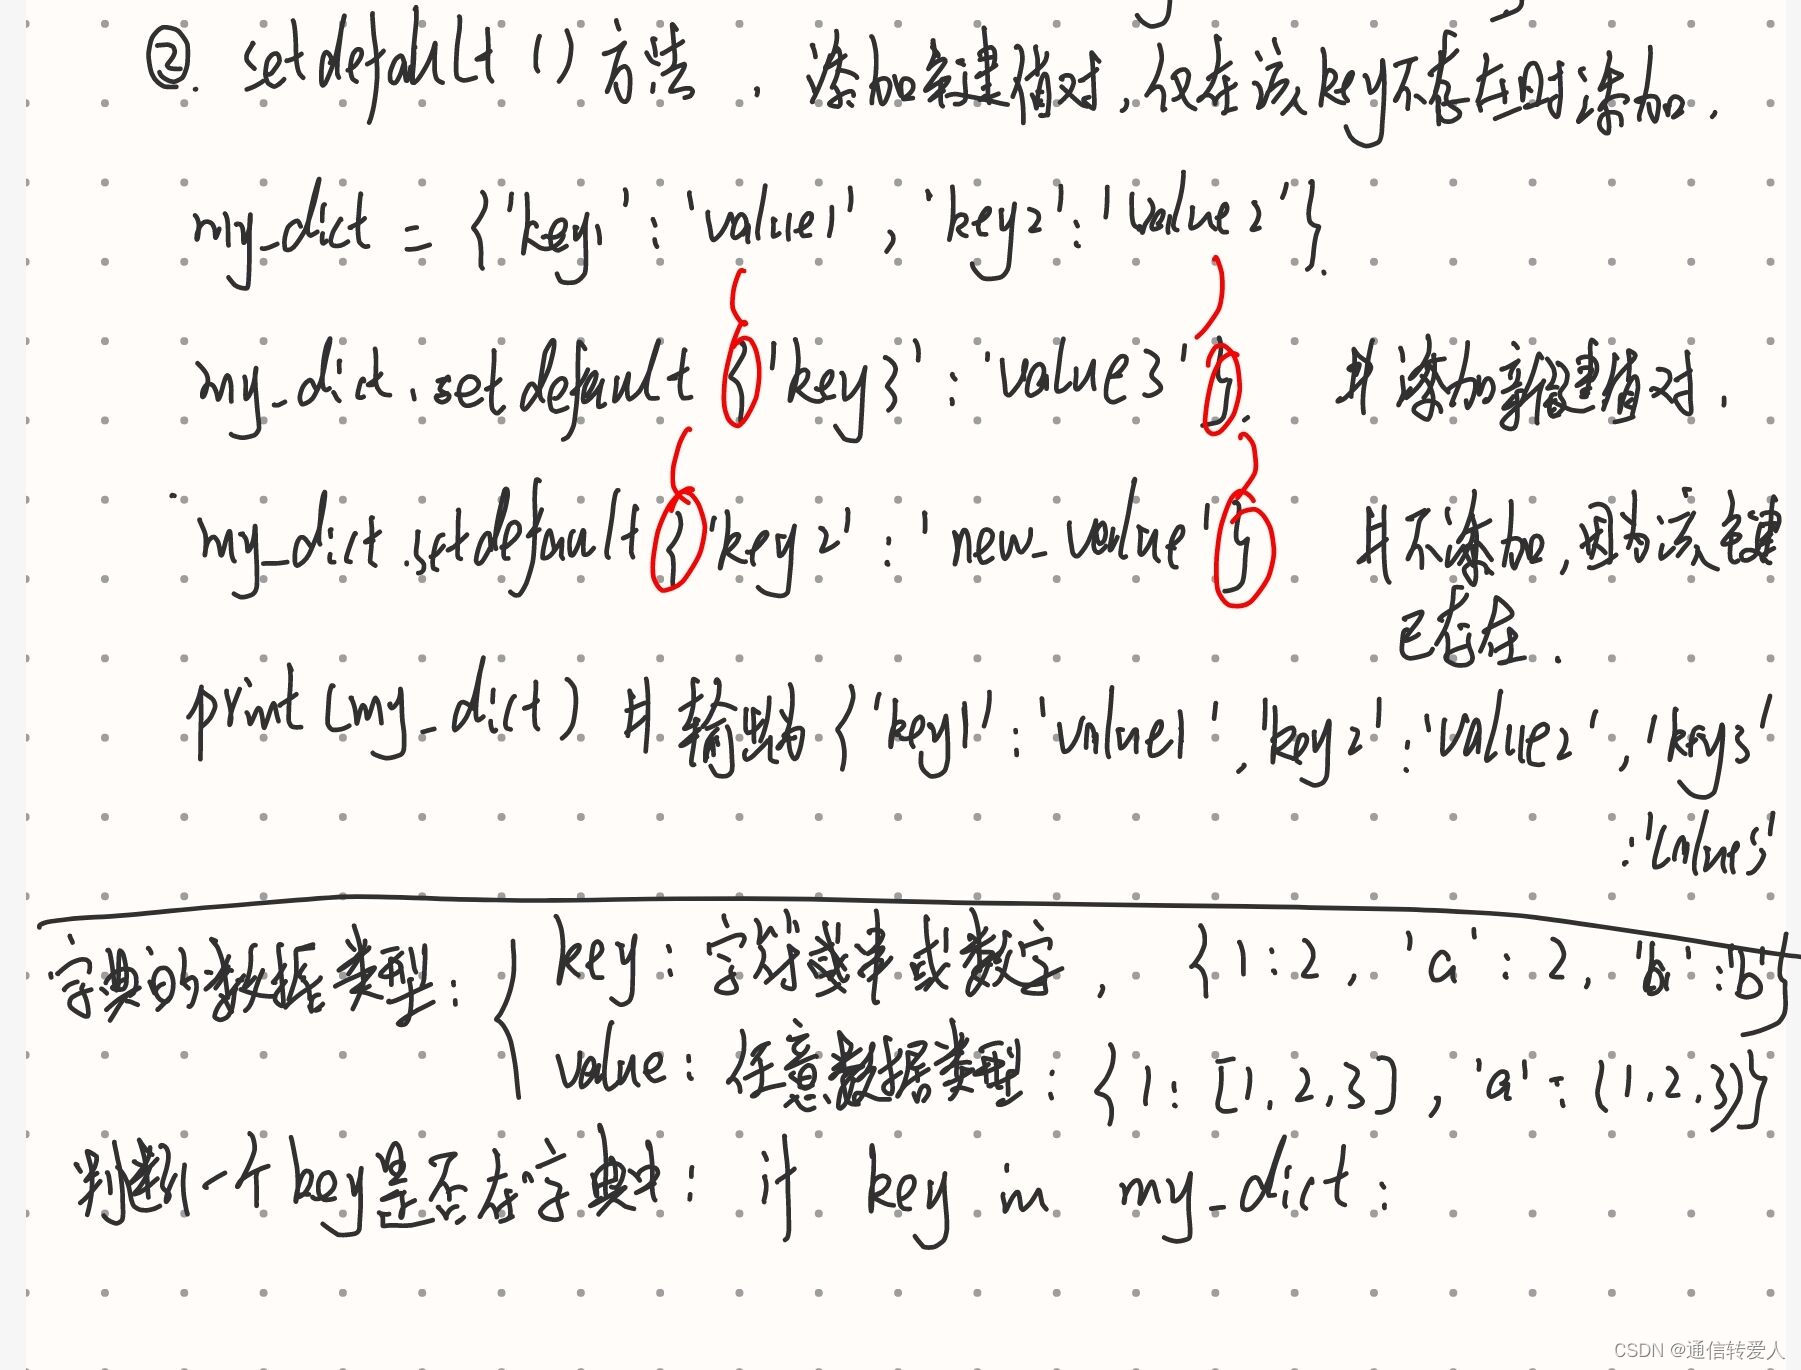 ②. setdefault()方法，添加键值对,仅在该key不存在时添加.
my_dict = {'key1':'value1','key2':'value2'}.
( )
my_dict.setdefault{'key3':'value3'}. #添加新键值对.
( )
my_dict.setdefault{'key2':'new_value'} #不添加,因为该键
已存在.
print(my_dict) #输出为{'key1':'value1','key2':'value2','key3'
:'value3'
字典的数据类型: { key:字符或串或数字, {1:2,'a':2,'b':'b'}
value:任意数据类型:{1:[1,2,3],'a':(1,2,3)}
判断一个key是否在字典中: if key in my_dict:
CSDN @通信转爱人